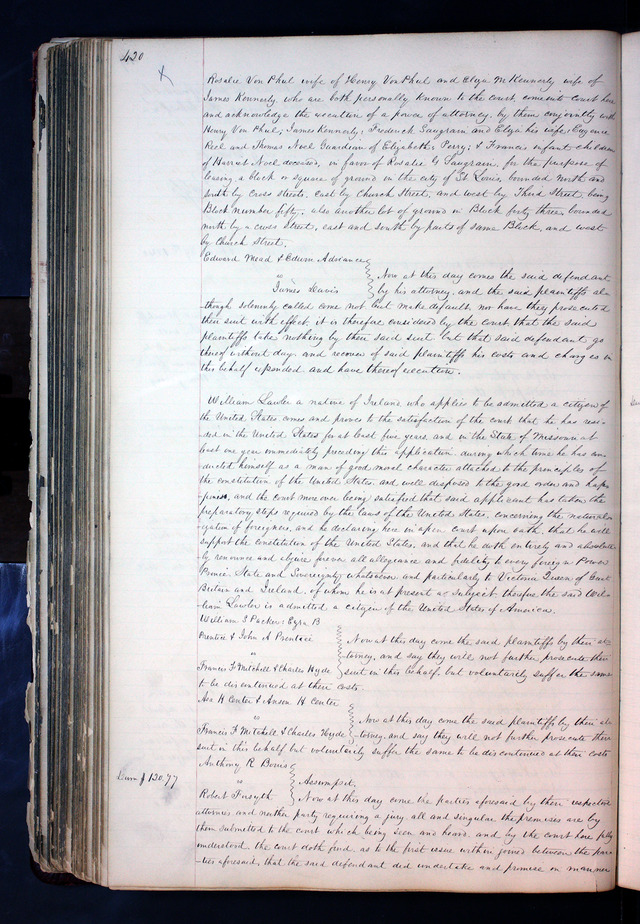 420
Rosalie Von Phul wife of Henry Von Phul and Eliza M Kennerly wife of
James Kennerly who are both personally known to the court, comes in Court here
and acknowledge the execution of a power of attorney, by them conjointly with
Henry Von Phul, James Kennerly, Frederick Saugrain and Eliza his wife, Eugenie
Reel and Thomas Noel Guardian of Elizabeth, Perry, & Francis infant children
of Harriet Noel deceased, in favor of Rosalie G Saugrain, for the purpose of
leasing a block or square of ground in the city of St Louis, bounded north and
south by cross streets, east by Church Street, and west by Third Street, being
Block number fifty, also another lot of ground in Block forty three, bounded
north by a cross Street, east and south by parts of same Block, and west
by Church Street.
Edward Mead & Edwin Adriance
vs
James Davis
Now at this day comes the said defendant
by his attorney, and the said plaintiffs al-
though solemnly called come not but make default, nor have they prosecuted
their suit with effect, it is therefore considered by the court that the said
plaintiffs take nothing by their said suit but that said defendant go
thereof without day and recover of said plaintiffs his costs and charges in
this behalf expended and have thereof execution.
William Lawler a native of Ireland who applies to be admitted a citizen of
the United States comes and proves to the satisfaction of the court that he has resi-
ded in the United States for at least five years, and in the State of Missouri at
least one year immediately preceding this application, during which time he has con-
ducted himself as a man of good moral character attached to the principles of
the constitution of the United States, and well disposed to the good order and hap-
piness, and the court moreover being satisfied that said applicant has taken the
preparatory steps required by the laws of the United States, concerning the naturali-
zation of foreigners, and he declaring here in open court upon oath, that he will
support the constitution of the United States, and that he doth entirely and absolute-
ly renounce and abjure forever all allegiance and fidelity to every foreign Power
Prince State and Sovereignty whatsoever and particularly to Victoria Queen of Great
Britain and Ireland, of whom he is at present a Subject therefore the said Wil-
liam Lawler is admitted a citizen of the United States of America.
William S Packer, Ezra B
Prentice & John A Prentice
vs
Francis F Mitchell & Charles Hyde
Now at this day come the said plaintiffs by their at-
torney, and say they will not further prosecute their
suit in this behalf, but voluntarily suffer the same
to be discontinued at their costs.
Asa H Center & Anson H Center
vs
Francis F Mitchell & Charles Hyde
Now at this day come the said plaintiffs by their at-
torney, and say they will not further prosecute their
suit in this behalf but voluntarily suffer the same to be discontinued at their costs
Anthony R Bouis
vs
Robert Forsyth
Assumpsit.
Dam $ 120.77
Now at this day come the parties aforesaid by their respective
attornies and neither party requiring a jury, all and singular the premises are by
them submitted to the court which being seen and heard, and by the court here fully
understood, the court doth find, as to the first issue within joined between the par-
ties aforesaid, that the said defendant did undertake and promise in manner